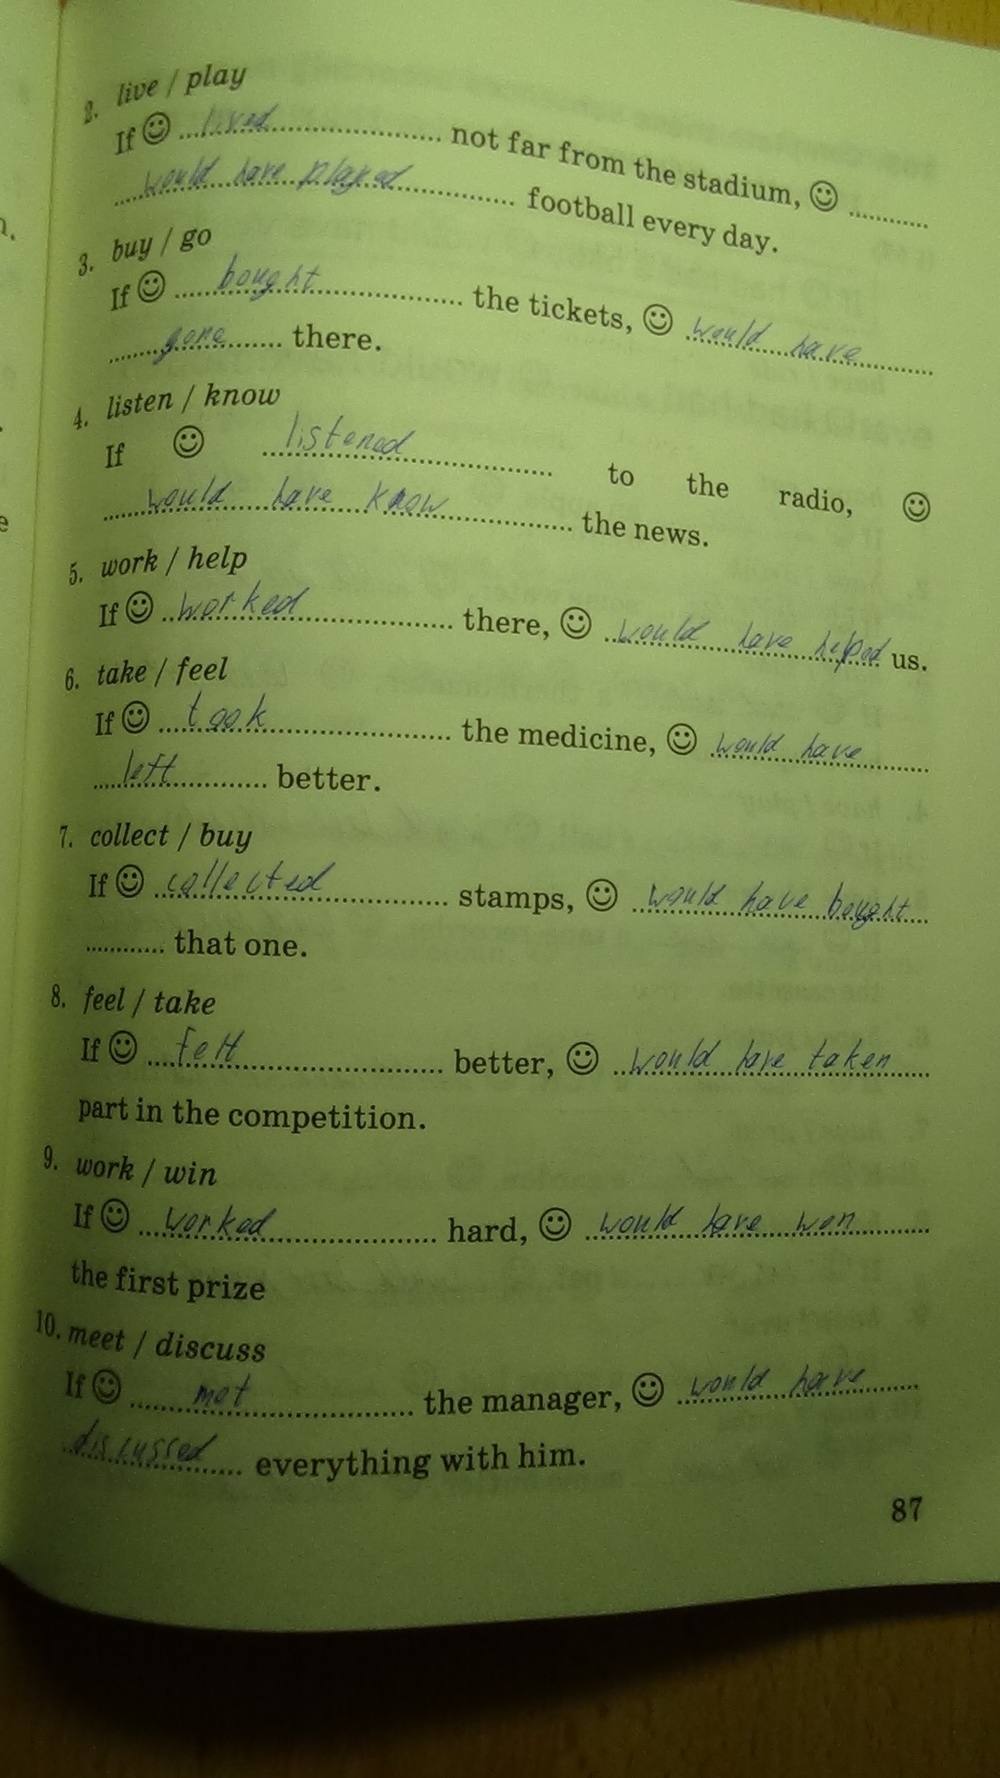 2. live / play
If ☺ lived not far from the stadium, ☺
would have played football every day.
3. buy / go
If ☺ bought the tickets, ☺ would have
gone there.
4. listen / know
If ☺ listened to the radio, ☺
would have know the news.
5. work / help
If ☺ worked there, ☺ would have helped us.
6. take / feel
If ☺ took the medicine, ☺ would have
left better.
7. collect / buy
If ☺ collected stamps, ☺ would have bought
that one.
8. feel / take
If ☺ felt better, ☺ would have taken
part in the competition.
9. work / win
If ☺ worked hard, ☺ would have won
the first prize
10. meet / discuss
If ☺ met the manager, ☺ would have
discussed everything with him.
87